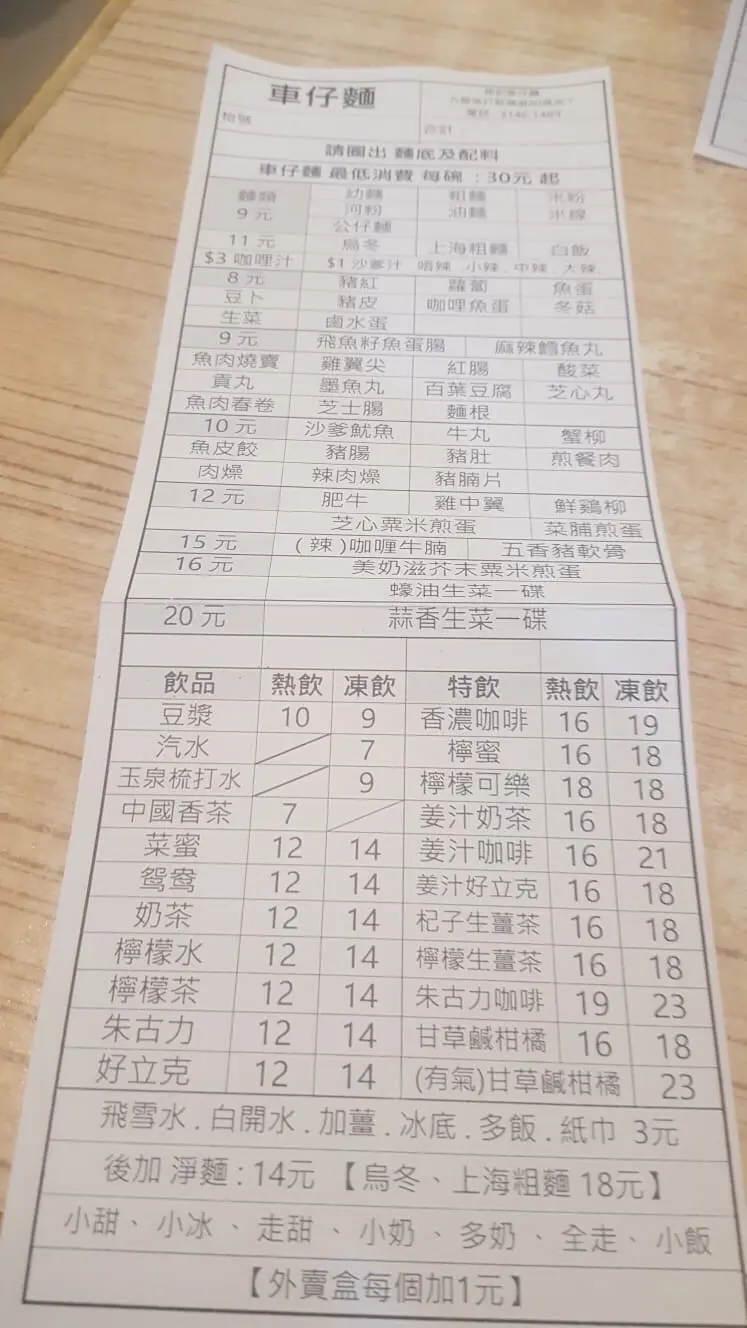 車仔麵
枱號
合計
請圈出 麵底及配料
車仔麵 最低消費 每碗 : 30元 起
麵類 幼麵 粗麵 米粉
9 元 河粉 油麵 米線
公仔麵
11 元 烏冬 上海粗麵 白飯
$3 咖哩汁 $1 沙爹汁 唔辣 . 小辣 . 中辣 . 大辣
8 元 豬紅 蘿蔔 魚蛋
豆卜 豬皮 咖哩魚蛋 冬菇
生菜 鹵水蛋
9 元 飛魚籽魚蛋腸 麻辣鱈魚丸
魚肉燒賣 雞翼尖 紅腸 酸菜
貢丸 墨魚丸 百葉豆腐 芝心丸
魚肉春卷 芝士腸 麵根
10 元 沙爹魷魚 牛丸 蟹柳
魚皮餃 豬腸 豬肚 煎餐肉
肉燥 辣肉燥 豬腩片
12 元 肥牛 雞中翼 鮮鷄柳
芝心粟米煎蛋 菜脯煎蛋
15 元 (辣)咖喱牛腩 五香豬軟骨
16 元 美奶滋芥末粟米煎蛋
蠔油生菜一碟
20 元 蒜香生菜一碟
飲品 熱飲 凍飲 特飲 熱飲 凍飲
豆漿 10 9 香濃咖啡 16 19
汽水 7 檸蜜 16 18
玉泉梳打水 9 檸檬可樂 18 18
中國香茶 7 姜汁奶茶 16 18
菜蜜 12 14 姜汁咖啡 16 21
鴛鴦 12 14 姜汁好立克 16 18
奶茶 12 14 杞子生薑茶 16 18
檸檬水 12 14 檸檬生薑茶 16 18
檸檬茶 12 14 朱古力咖啡 19 23
朱古力 12 14 甘草鹹柑橘 16 18
好立克 12 14 (有氣)甘草鹹柑橘 23
飛雪水 . 白開水 . 加薑 . 冰底 . 多飯 . 紙巾 3元
後加 淨麵 : 14元 【烏冬、上海粗麵 18元】
小甜、 小冰 、 走甜 、 小奶 、 多奶 、 全走、 小飯
【外賣盒每個加1元】